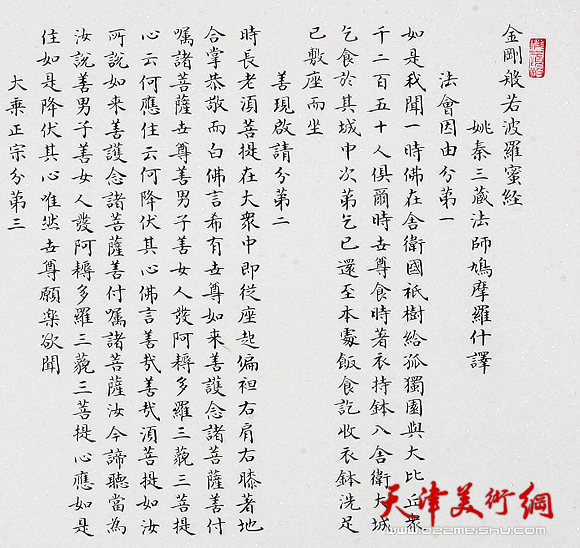 金剛般若波羅蜜經
姚秦三藏法師鳩摩羅什譯
法會因由分第一
如是我聞一時佛在舍衛國祇樹給孤獨園與大比丘眾
千二百五十人俱爾時世尊食時著衣持鉢入舍衛大城
乞食於其城中次第乞已還至本處飯食訖收衣鉢洗足
已敷座而坐
善現啟請分第二
時長老須菩提在大眾中即從座起偏袒右肩右膝著地
合掌恭敬而白佛言希有世尊如來善護念諸菩薩善付
囑諸菩薩世尊善男子善女人發阿耨多羅三藐三菩提
心云何應住云何降伏其心佛言善哉善哉須菩提如汝
所說如來善護念諸菩薩善付囑諸菩薩汝今諦聽當為
汝說善男子善女人發阿耨多羅三藐三菩提心應如是
住如是降伏其心唯然世尊願樂欲聞
大乘正宗分第三
天津美術網
www.022meishu.com